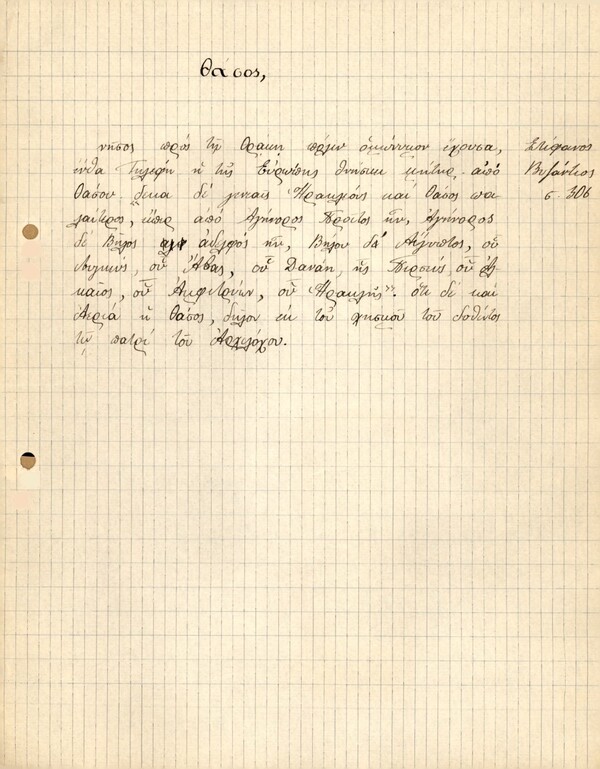 Θάσος,
νῆσος πρὸς τῇ Θράκῃ πόλιν ὁμώνυμον ἔχουσα,
ἔνθα Τηλεφῆ ἡ τῆς Εὐρώπης θνήσκει μήτηρ, ἀπὸ
Θάσου δέκα δὲ γενεαῖς Ἡρακλέους καὶ Θάσος πα
λαίτερος, εἴπερ ἀπὸ Ἀγήνορος Πρῶτος ἦν, Ἀγήνορος
δὲ Βῆλος ἀδελφὸς ἦν, Βήλου δὲ Αἴγυπτος, οὗ
Λυγκεύς, οὗ Ἄβας, οὗ Δανάη, ἧς Περσεύς, οὗ Ἀλ
καῖος, οὗ Ἀμφιτρύων, οὗ Ἡρακλῆς". ὅτι δὲ καὶ
Ἀερία ἡ Θάσος, δῆλον ἐκ τοῦ χρησμοῦ τοῦ δοθέντος
τῷ πατρὶ τοῦ Ἀρχιλόχου.
Στέφανος
Βυζάντιος
σ. 306